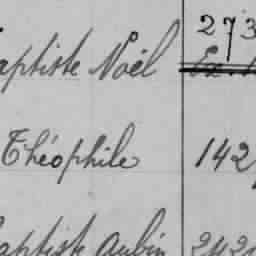 aptiste Noël 273
Théophile 142
aptiste Aubin 242